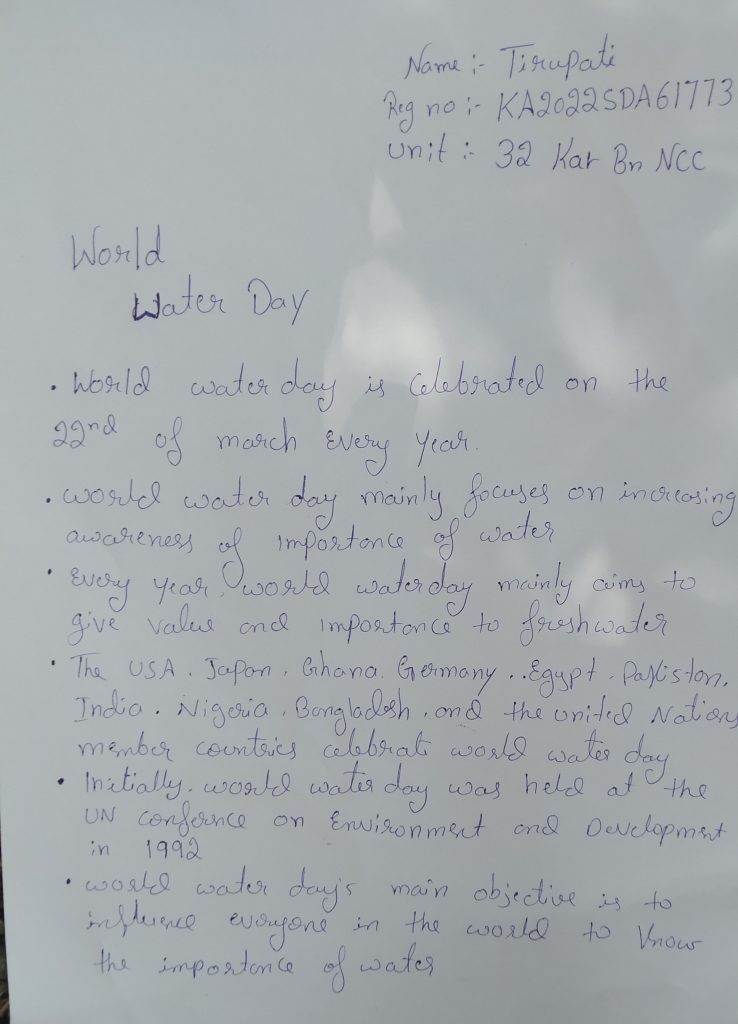 Name :- Tirupati
Reg no :- KA2022SDA61773
Unit :- 32 Kar Bn NCC
World
Water Day
• World water day is Celebrated on the
22nd of march Every Year.
• world water day mainly focuses on increasing
awareness of importance of water
• Every year, world water day mainly aims to
give value and importance to freshwater
• The USA, Japan, Ghana, Germany, Egypt, Pakistan,
India, Nigeria, Bangladesh, and the united Nations
member countries celebrate world water day
• Initially, world water day was held at the
UN conference on Environment and Development
in 1992
• world water day's main objective is to
influence everyone in the world to know
the importance of water